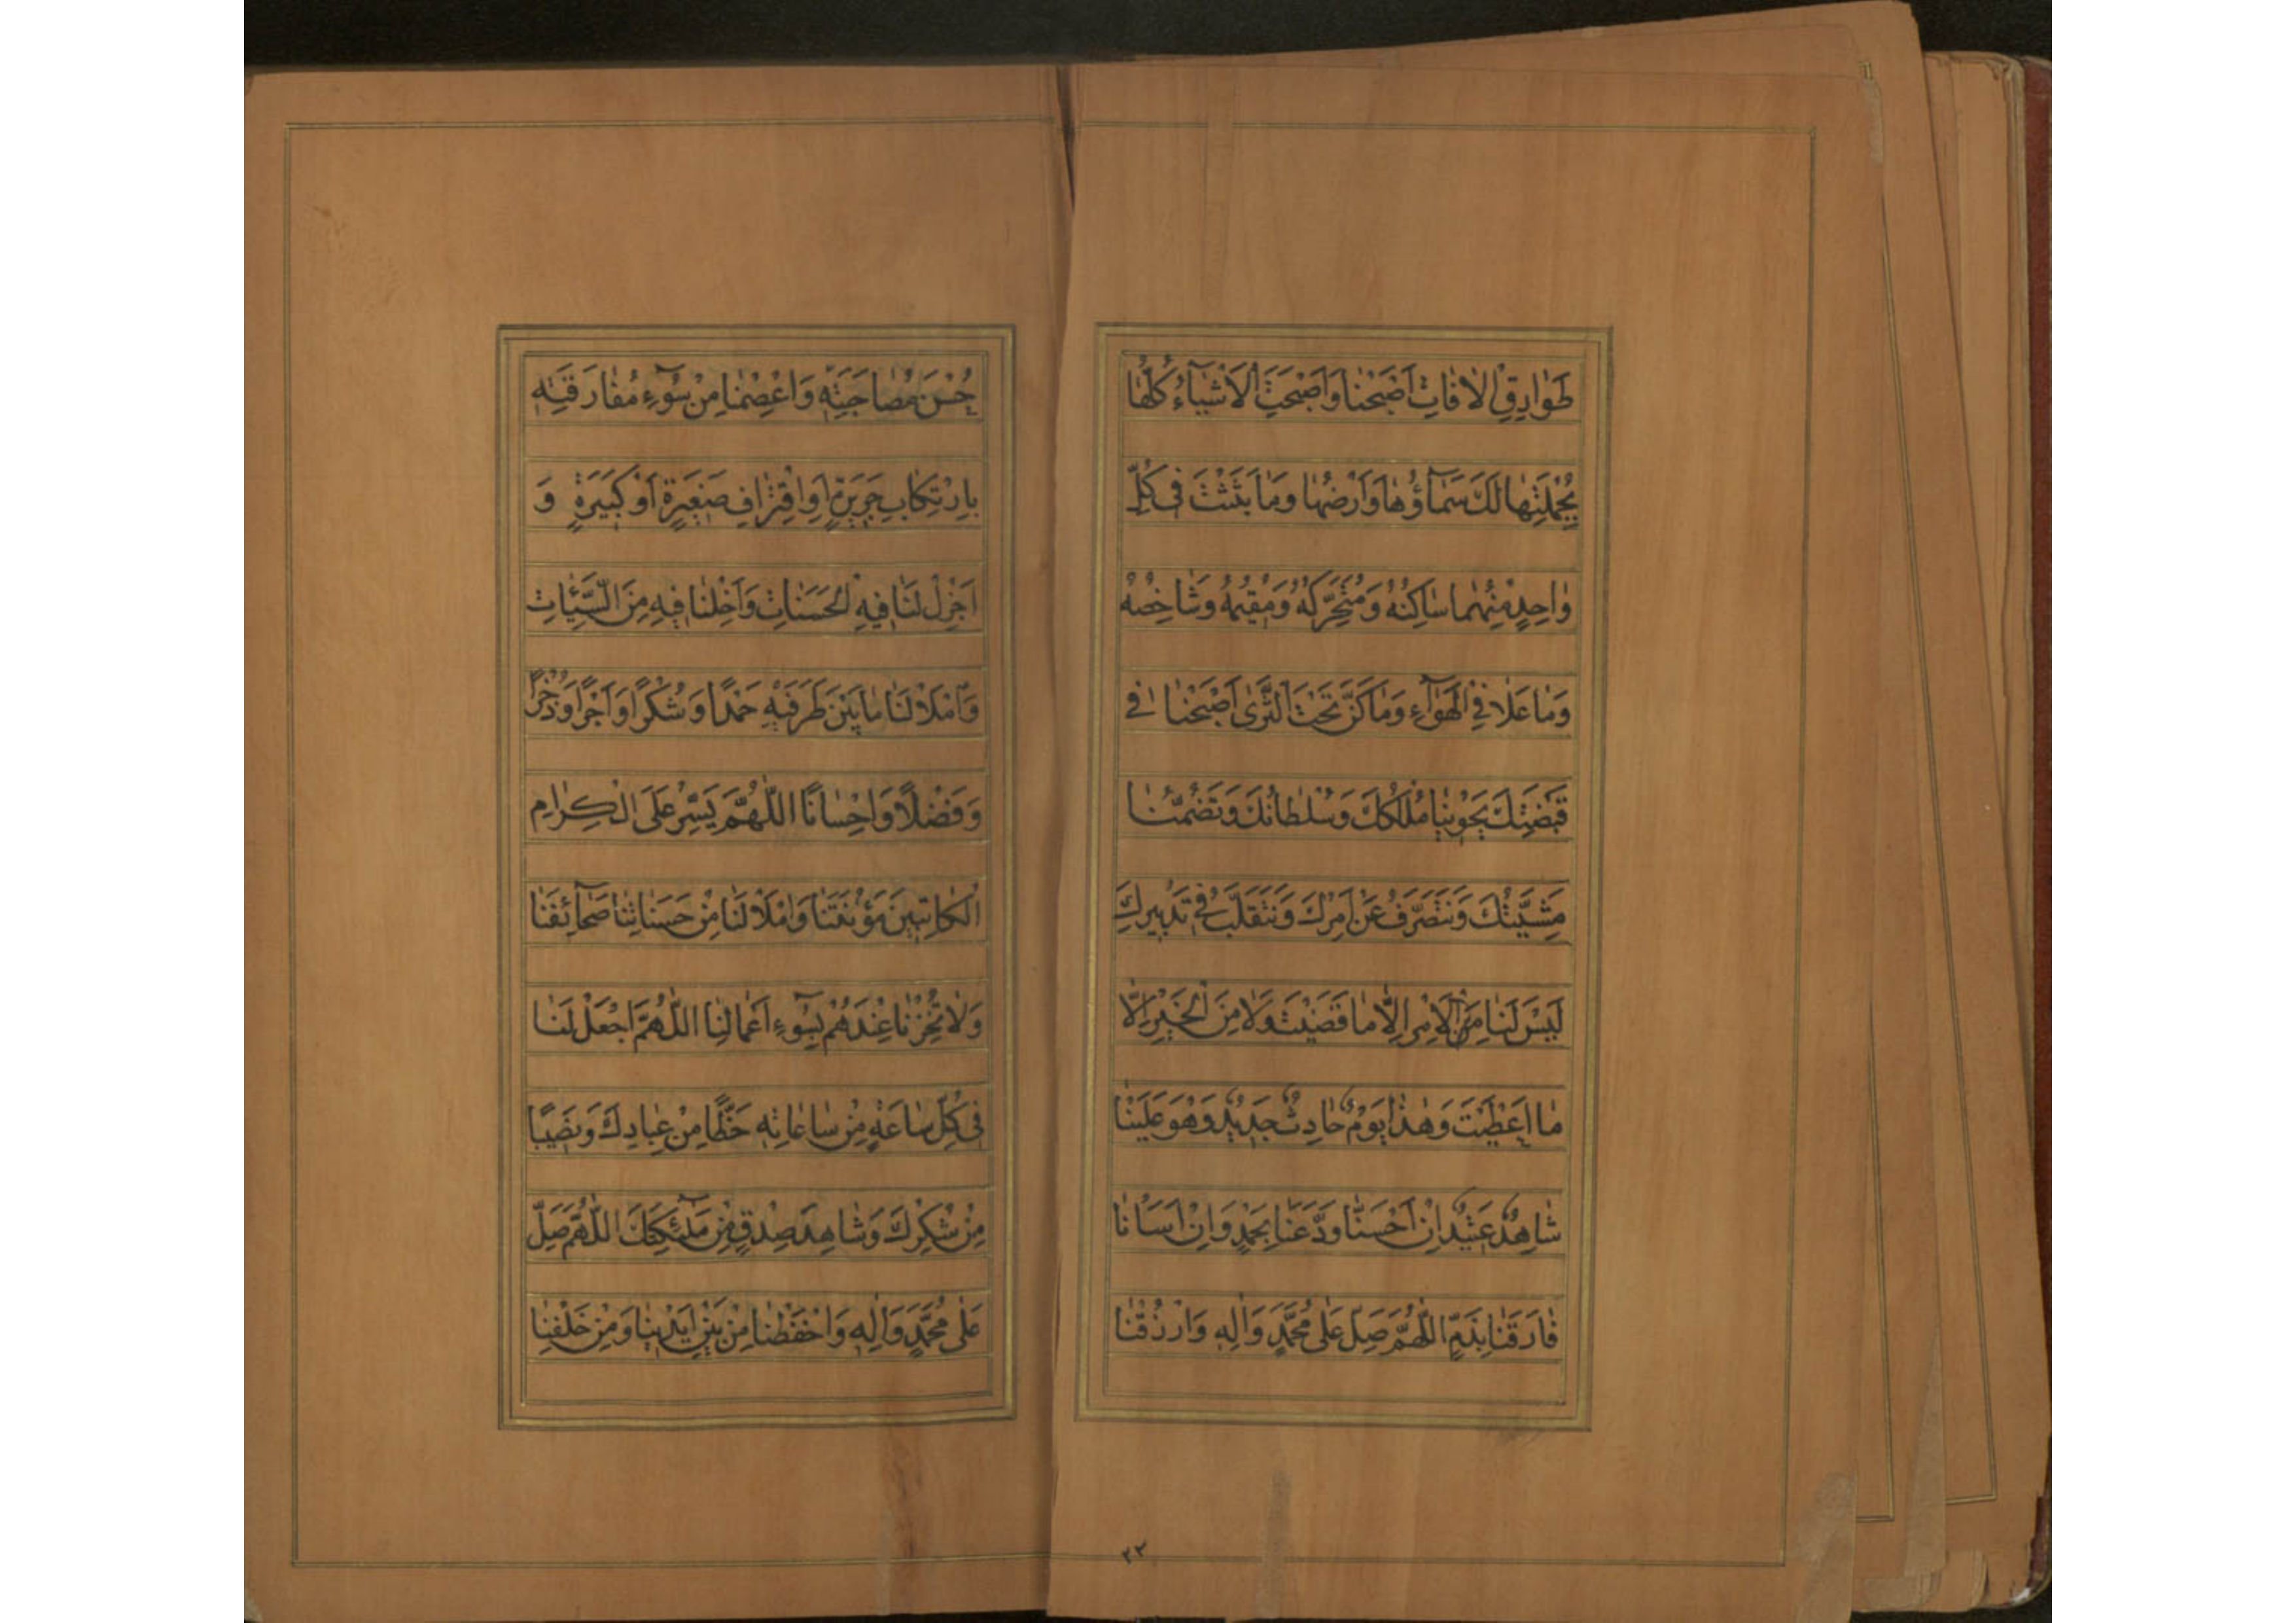 طَوٰارِقِ الْاٰفٰاتِ اَصْبَحْنٰا وَاَصْبَحَتِ الْاَشْيٰآءُ كُلُّهٰا
بِجُمْلَتِهٰا لَكَ سَمٰآؤُهٰا وَاَرْضُهٰا وَمٰا بَثَثْتَ فِى كُلِّ
وٰاحِدٍ مِنْهُمٰا سٰاكِنُهُ وَمُتَحَرِّكُهُ وَمُقيمُهُ وَشٰاخِصُهُ
وَمٰا عَلٰا فِى الْهَوٰآءِ وَمٰا كَنَّ تَحْتَ الثَّرىٰ اَصْبَحْنٰا فى
قَبْضَتِكَ يَحْوينٰا مُلْكُكَ وَسُلْطٰانُكَ وَتَضُمُّنٰا
مَشِيَّتُكَ وَنَتَصَرَّفُ عَنْ اَمْرِكَ وَنَتَقَلَّبُ فى تَدْبيرِكَ
لَيْسَ لَنٰا مِنَ الْاَمْرِ اِلّٰا مٰا قَضَيْتَ وَلٰا مِنَ الْخَيْرِ اِلّٰا
مٰا اَعْطَيْتَ وَهٰذٰا يَوْمٌ حٰادِثٌ جَديدٌ وَهُوَ عَلَيْنٰا
شٰاهِدٌ عَتيدٌ اِنْ اَحْسَنّٰا وَدَّعَنٰا بِحَمْدٍ وَاِنْ اَسَاْنٰا
فٰارَقَنٰا بِذَمٍّ اَللّٰهُمَّ صَلِّ عَلىٰ مُحَمَّدٍ وَاٰلِهِ وَارْزُقْنٰا
٢٢
حُسْنَ مُصٰاحَبَتِهِ وَاعْصِمْنٰا مِنْ سُوٓءِ مُفٰارَقَتِهِ
بِارْتِكٰابِ جَريرَةٍ اَوِ اقْتِرٰافِ صَغيرَةٍ اَوْ كَبيرَةٍ وَ
اَجْزِلْ لَنٰا فيهِ الْحَسَنٰاتِ وَاَخْلِنٰا فيهِ مِنَ السَّيِّئٰاتِ
وَامْلَاْ لَنٰا مٰا بَيْنَ طَرَفَيْهِ حَمْدًا وَشُكْرًا وَاَجْرًا وَذُخْرًا
وَفَضْلًا وَاِحْسٰانًا اَللّٰهُمَّ يَسِّرْ عَلَى الْكِرٰامِ
الْكٰاتِبينَ مَؤُنَتَنٰا وَامْلَاْ لَنٰا مِنْ حَسَنٰاتِنٰا صَحٰآئِفَنٰا
وَلٰا تُخْزِنٰا عِنْدَهُمْ بِسُوٓءِ اَعْمٰالِنٰا اَللّٰهُمَّ اجْعَلْ لَنٰا
فى كُلِّ سٰاعَةٍ مِنْ سٰاعٰاتِهِ حَظًّا مِنْ عِبٰادِكَ وَنَصيبًا
مِنْ شُكْرِكَ وَشٰاهِدَ صِدْقٍ مِنْ مَلٰٓئِكَتِكَ اَللّٰهُمَّ صَلِّ
عَلىٰ مُحَمَّدٍ وَاٰلِهِ وَاحْفَظْنٰا مِنْ بَيْنِ اَيْدينٰا وَمِنْ خَلْفِنٰا